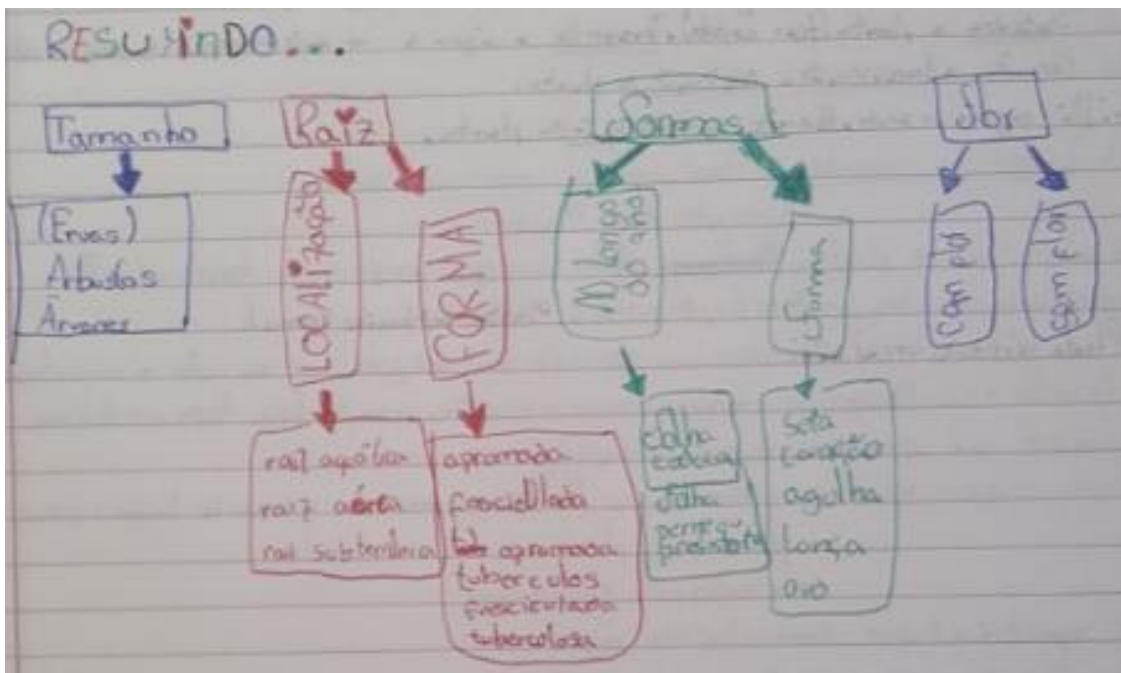 RESUMINDO...
Tamanho
(Ervas)
Arbustos
Árvores
Raiz
LOCALIZAÇÃO
raiz aquática
raiz aérea
raiz subterrânea
FORMA
aprumada
fasciculada
aprumada
tuberculos
fasciculada
tuberculosa
Formas
Ao longo
do ano
folha
caduca
folha
persistente
Forma
Seta
coração
agulha
lança
ovo
flor
com flor
sem flor